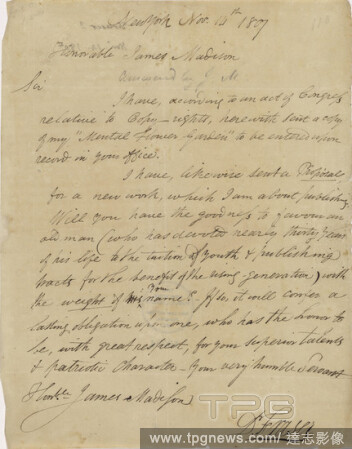 NewYork Nov. 13th 1807
Honorable James Madison
answered by J M
Sir
I have, according to an act of Congress
relative to Copy-rights, herewith sent a copy
of my "Mental Flower Garden" to be entered upon
record in your office.
I have, likewise sent a Proposal
for a new work, which I am about publishing.
Will you have the goodness to favour an
old man (who has devoted nearly thirty years
of his life to the tuition of youth & publishing
tracts for the benefit of the rising generation) with
the weight of your name? If so it will confer a
lasting obligation upon one, who has the honor to
be, with great respect, for your superior talents
& patriotic character your very humble Servant
Honble James Madison
D Fraser
TPG
www.tpgnews.com/達志影像